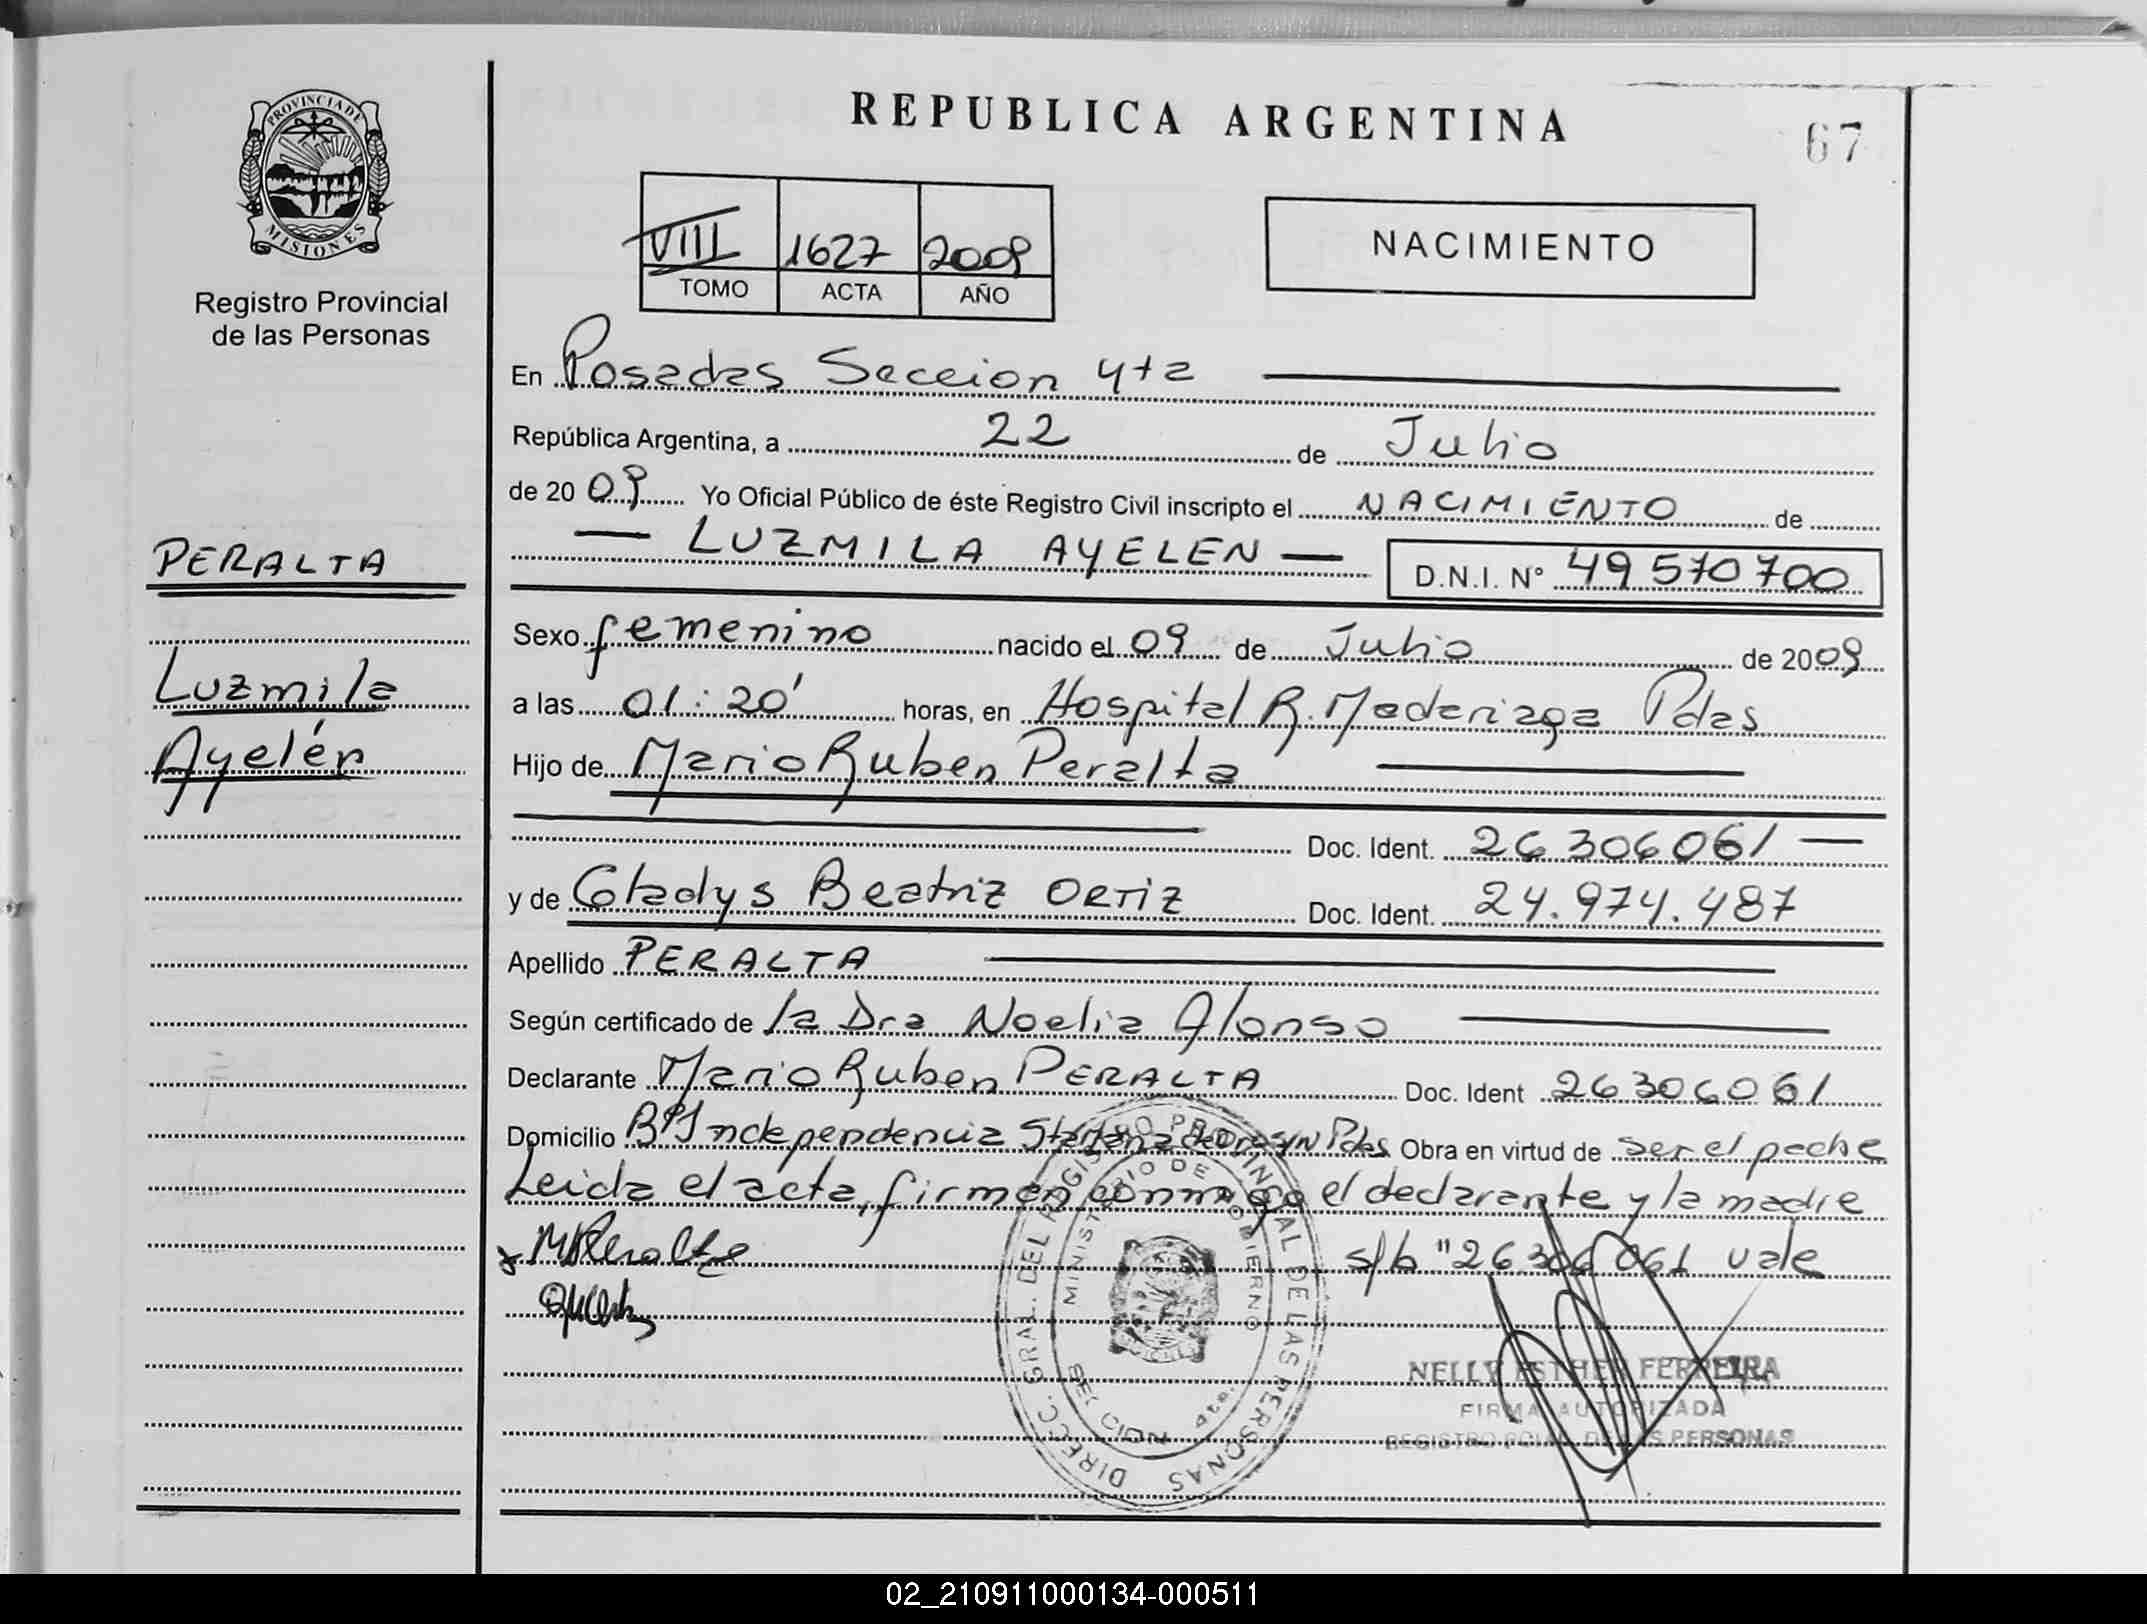 REPUBLICA ARGENTINA
67
PROVINCIA DE
MISIONES
Registro Provincial
de las Personas
VIII 1627 2009
TOMO ACTA AÑO
NACIMIENTO
En Posadas Seccion 4ta
República Argentina, a 22 de Julio
de 20 09 Yo Oficial Público de éste Registro Civil inscripto el NACIMIENTO de
LUZMILA AYELEN D.N.I. N° 49 570 700
PERALTA
Luzmila
Ayelén
Sexo femenino nacido el 09 de Julio de 2009
a las 01:20' horas, en Hospital R. Madariaga Pdas
Hijo de Mario Ruben Peralta
Doc. Ident. 26306061
y de Gladys Beatriz ORTIZ Doc. Ident. 24.974.487
Apellido PERALTA
Según certificado de la Dra Noelia Alonso
Declarante Mario Ruben PERALTA Doc. Ident 26306061
Domicilio Bº Independencia S/N Pdas Obra en virtud de ser el padre
Leida el acta, firman conmigo el declarante y la madre
MRPeralta s/b "26306061 vale
DIRECC. GRAL. DEL REGISTRO PROVINCIAL DE LAS PERSONAS
MINISTERIO DE GOBIERNO
NELLY ESTHER FERREIRA
FIRMA AUTORIZADA
REGISTRO PCIAL. DE LAS PERSONAS
02_210911000134-000511